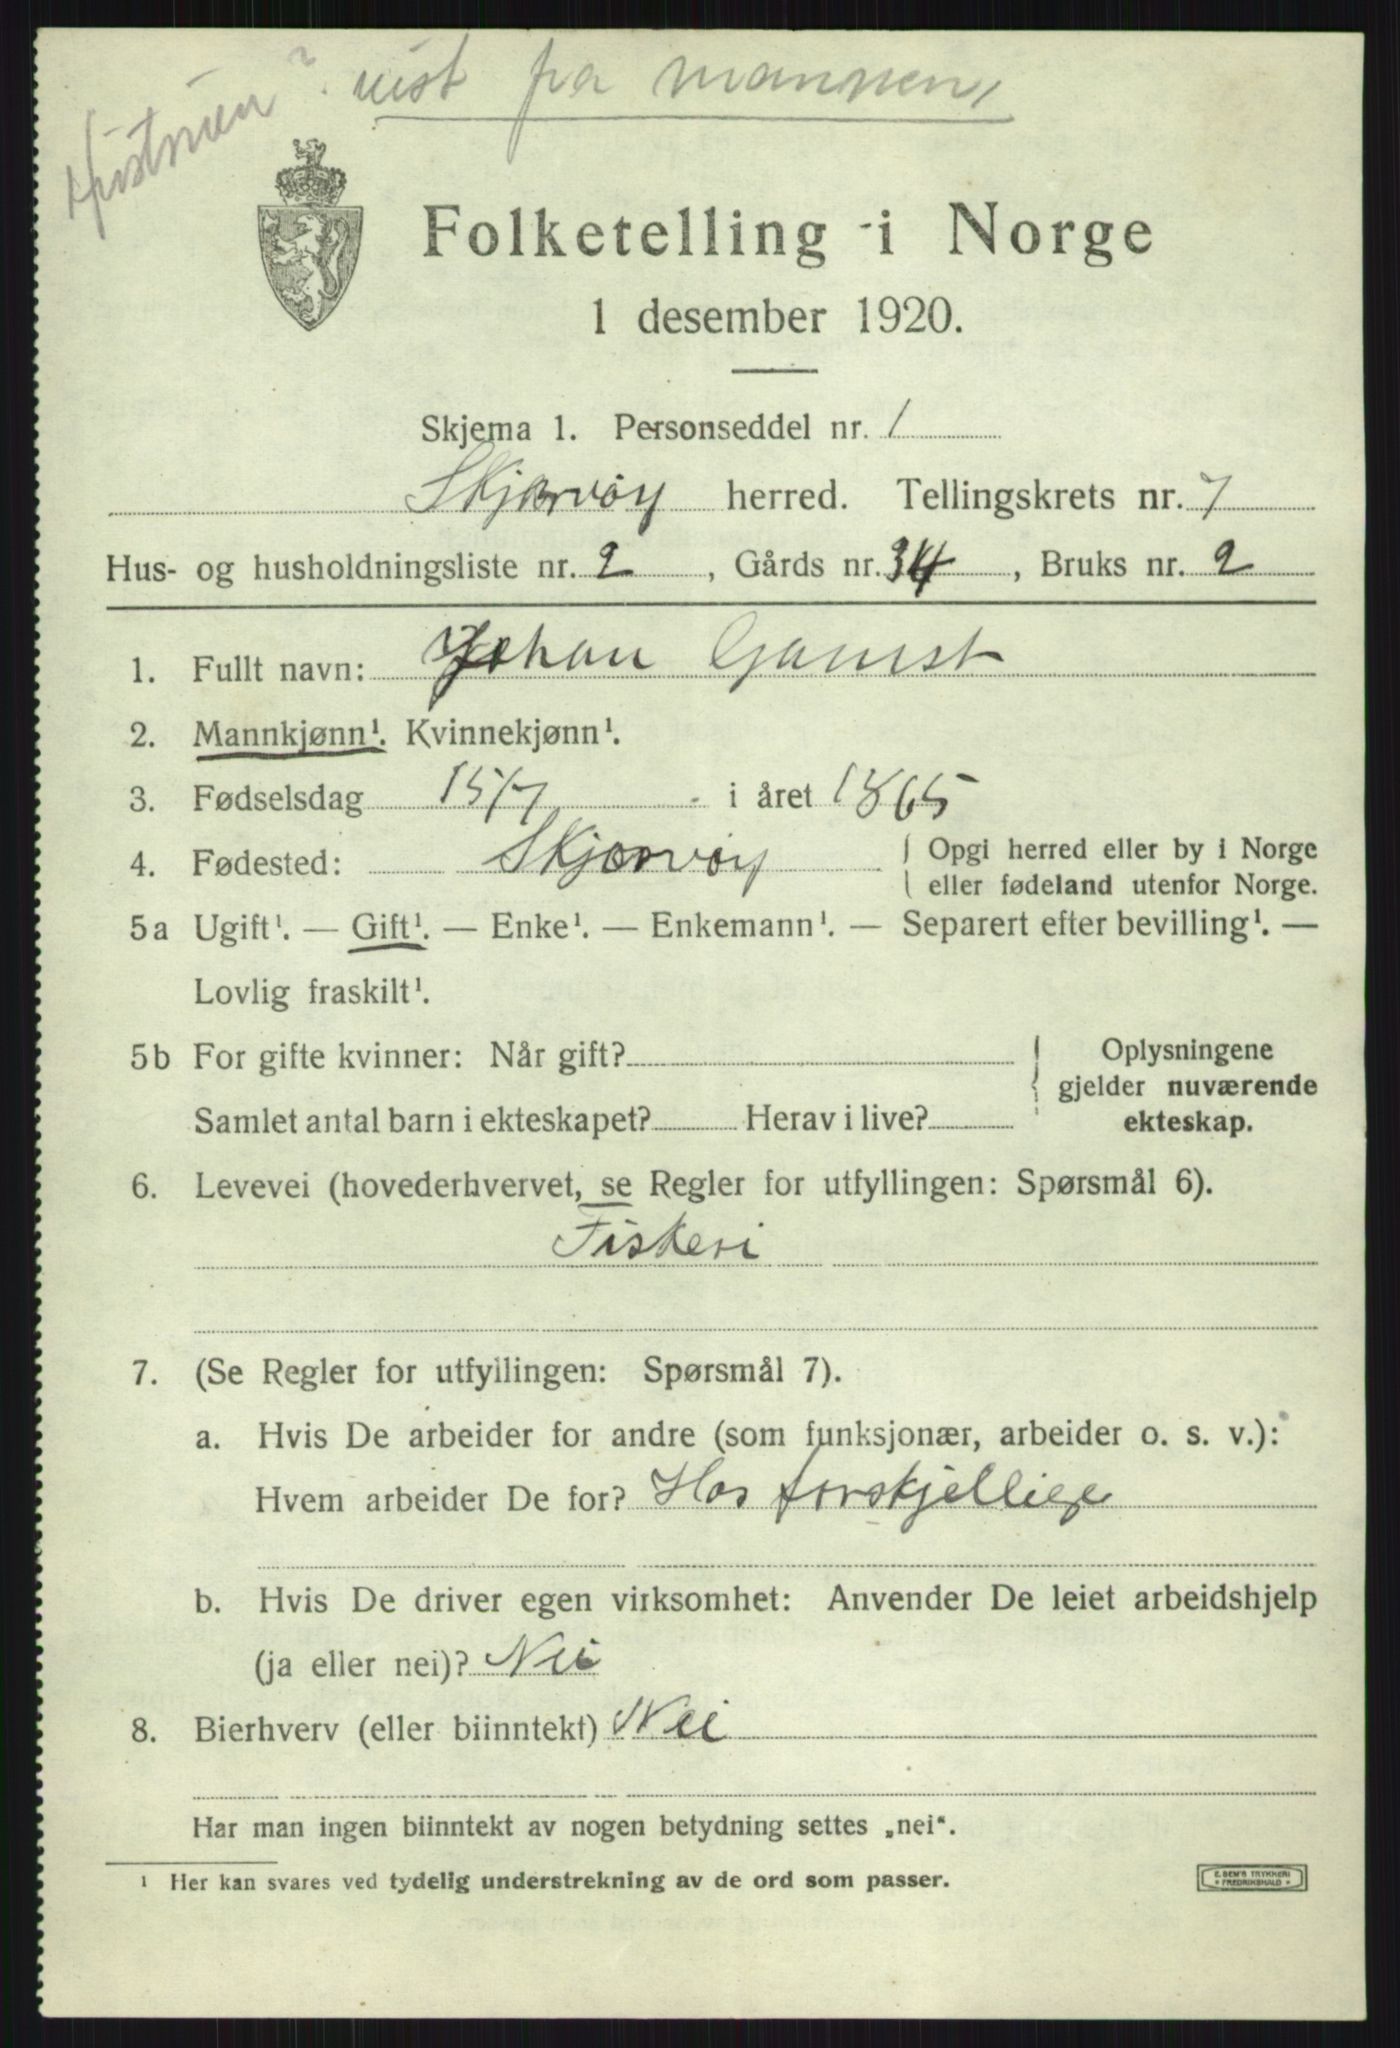 Hustruen? vist fra mannen,
Folketelling i Norge
1 desember 1920.
Skjema 1. Personseddel nr. 1
Skjærvøy herred. Tellingskrets nr. 7
Hus- og husholdningsliste nr. 2, Gårds nr. 34, Bruks nr. 2
1. Fullt navn: Johan Gamst
2. Mannkjønn¹. Kvinnekjønn¹.
3. Fødselsdag 15/7 i året 1865
4. Fødested: Skjærvøy Opgi herred eller by i Norge
eller fødeland utenfor Norge.
5a Ugift¹. — Gift¹. — Enke¹. — Enkemann¹. — Separert efter bevilling¹. —
Lovlig fraskilt¹.
5b For gifte kvinner: Når gift? Oplysningene
gjelder nuværende
Samlet antal barn i ekteskapet? Herav i live? ekteskap.
6. Levevei (hovederhvervet, se Regler for utfyllingen: Spørsmål 6).
Fiskeri
7. (Se Regler for utfyllingen: Spørsmål 7).
a. Hvis De arbeider for andre (som funksjonær, arbeider o. s. v.):
Hvem arbeider De for? Hos forskjellige
b. Hvis De driver egen virksomhet: Anvender De leiet arbeidshjelp
(ja eller nei)? Nei
8. Bierhverv (eller biinntekt) Nei
Har man ingen biinntekt av nogen betydning settes „nei“.
¹ Her kan svares ved tydelig understrekning av de ord som passer.
E. SEM'S TRYKKERI
* FREDRIKSHALD *